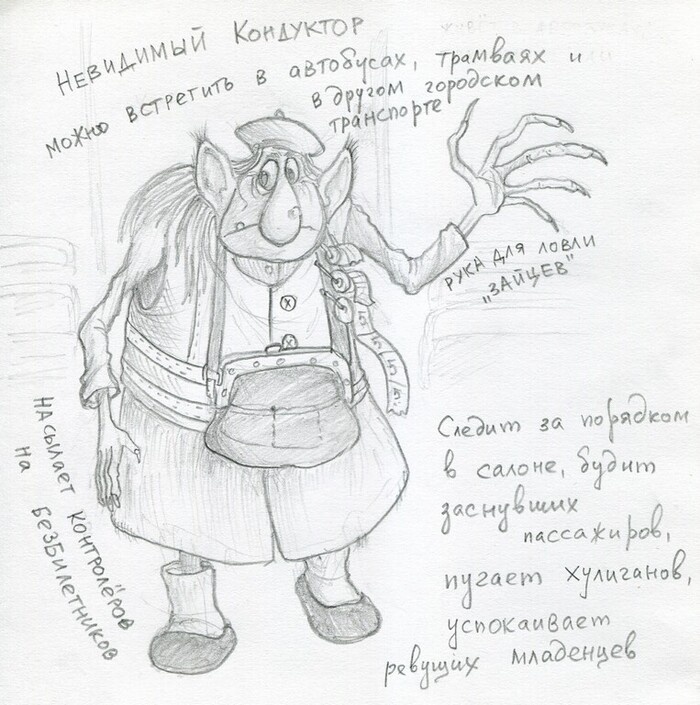 Невидимый Кондуктор
можно встретить в автобусах, трамваях и
в другом городском
транспорте
рука для ловли
„зайцев"
насылает контролёров
на безбилетников
Следит за порядком
в салоне, будит
заснувших
пассажиров,
пугает хулиганов,
успокаивает
ревущих младенцев
5 5 5 5